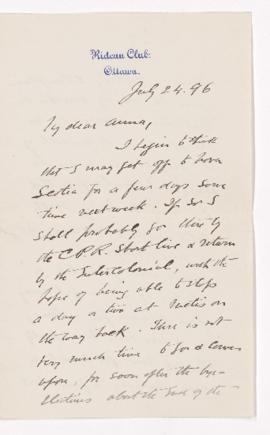 Rideau Club.
Ottawa.
July 24. 96
My dear Anna,
I begin to think
that I may get off to Nova
Scotia for a few days some
time next week. If so I
shall probably go there by
the C.P.R. Short line & return
by the Intercolonial, with the
hope of being able to stop
a day or two at Metis on
the way back. There is not
very much time to
upon, for soon after the bye-
elections about the end of the